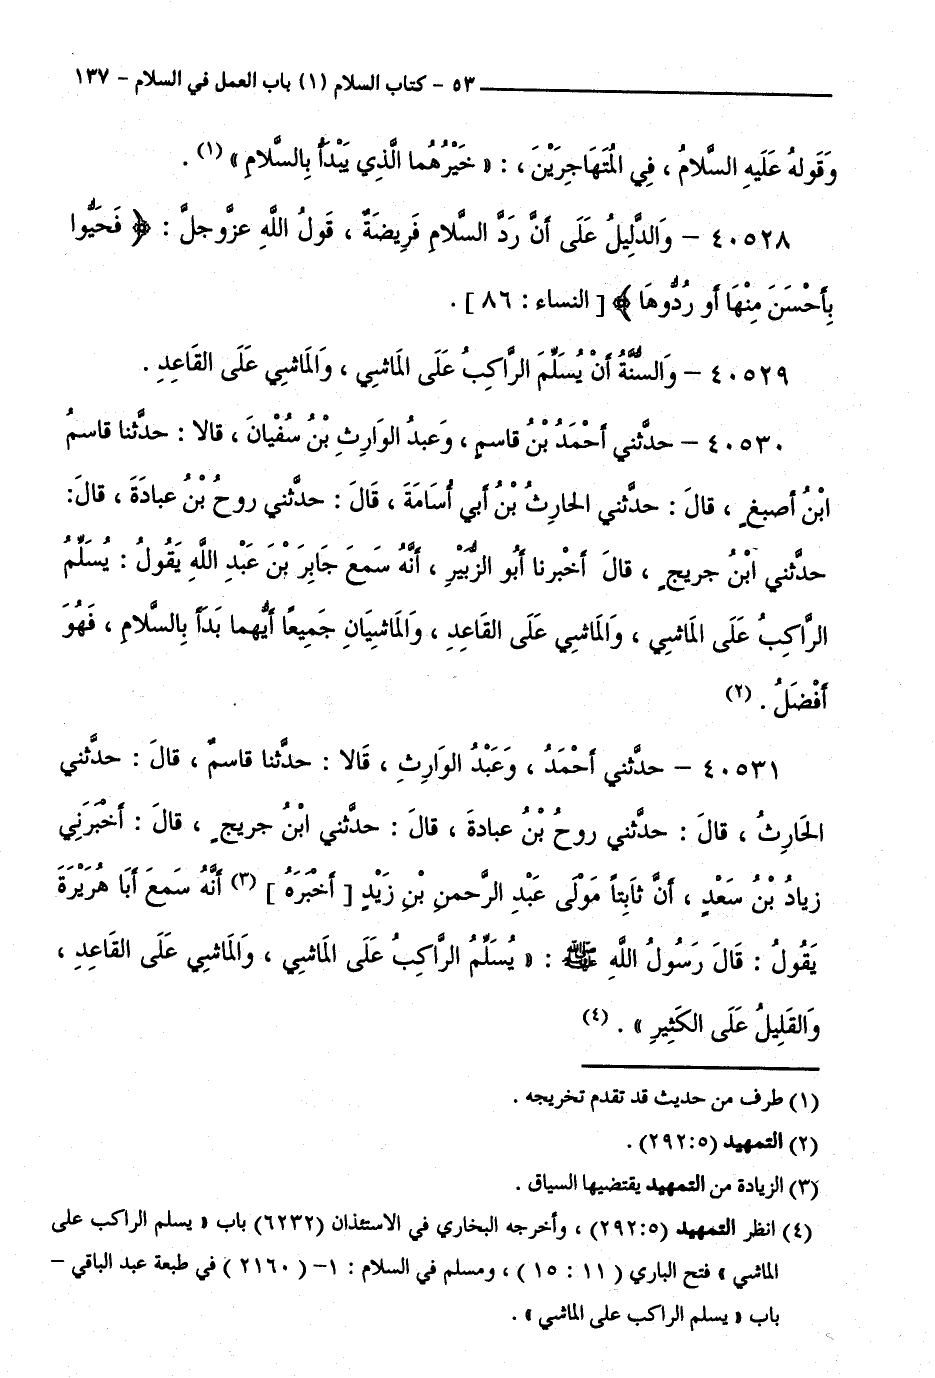 ٥٣ - كتاب السلام (١) باب العمل في السلام - ١٣٧
وَقَولهُ عَلَيهِ السَّلامُ ، فِي المُتَهَاجِرَيْنَ ، : « خَيْرُهُما الَّذِي يَبْدَأُ بِالسَّلامِ » (١) .
٤٠٥٢٨ - وَالدَّلِيلُ عَلَى أَنَّ رَدَّ السَّلامِ فَرِيضَةٌ ، قَولُ اللَّهِ عزَّوجلَّ : ﴿ فَحَيُّوا
بِأَحْسَنَ مِنْهَا أَو رُدُّوهَا ﴾ [ النساء : ٨٦ ] .
٤٠٥٢٩ - وَالسُّنَّةُ أَنْ يُسَلِّمَ الرَّاكِبُ عَلَى المَاشِي ، وَالمَاشِي عَلَى القَاعِدِ .
٤٠٥٣٠ - حدثَّني أَحْمَدُ بْنُ قاسمٍ ، وَعَبدُ الوَارِثِ بْنُ سُفْيانَ ، قالا : حدثَّنا قاسمُ
ابْنُ أصبغٍ ، قالَ : حدثَّني الحارِثُ بْنُ أَبي أُسَامَةَ ، قَالَ : حدثَّني روحُ بْنُ عبادَةَ ، قالَ:
حدثَّني ابْنُ جريجٍ ، قالَ أَخْبرنا أَبُو الزُّبَيْرِ ، أَنَّهُ سَمعَ جَابِرَ بْنَ عَبْدِ اللَّهِ يَقُولُ : يُسَلِّمُ
الرَّاكِبُ عَلَى المَاشِي ، وَالمَاشِي عَلَى القَاعِدِ ، وَالمَاشيَانِ جَميعًا أَيُّهما بَدَأَ بِالسَّلامِ ، فَهُوَ
أَفْضَلُ . (٢)
٤٠٥٣١ - حدثَّني أَحْمَدُ ، وَعَبْدُ الوَارِثِ ، قَالا : حدثَّنا قاسمٌ ، قَالَ : حدثَّني
الحَارِثُ ، قالَ : حدثَّني روحُ بْنُ عبادةَ ، قالَ : حدثَّني ابْنُ جريجٍ ، قالَ : أَخْبَرَنِي
زيادُ بْنُ سَعْدٍ ، أَنَّ ثَابِتاً مَوْلَى عَبْدِ الرَّحمنِ بْنِ زَيْدٍ [ أَخْبَرَهُ ] (٣) أَنَّهُ سَمعَ أَبَا هُرَيْرَةَ
يَقُولُ : قَالَ رَسُولُ اللَّهِ ﷺ : « يُسَلِّمُ الرَّاكِبُ عَلَى المَاشِي ، وَالمَاشِي عَلَى القَاعِدِ ،
وَالقَلِيلُ عَلَى الكَثِيرِ » . (٤)
(١) طرف من حديث قد تقدم تخريجه .
(٢) التمهيد (٢٩٢:٥) .
(٣) الزيادة من التمهيد يقتضيها السياق .
(٤) انظر التمهيد (٢٩٢:٥) ، وأخرجه البخاري في الاستئذان (٦٢٣٢) باب « يسلم الراكب على
الماشي » فتح الباري ( ١١ : ١٥ ) ، ومسلم في السلام : ١- ( ٢١٦٠ ) في طبعة عبد الباقي -
باب « يسلم الراكب على الماشي » .